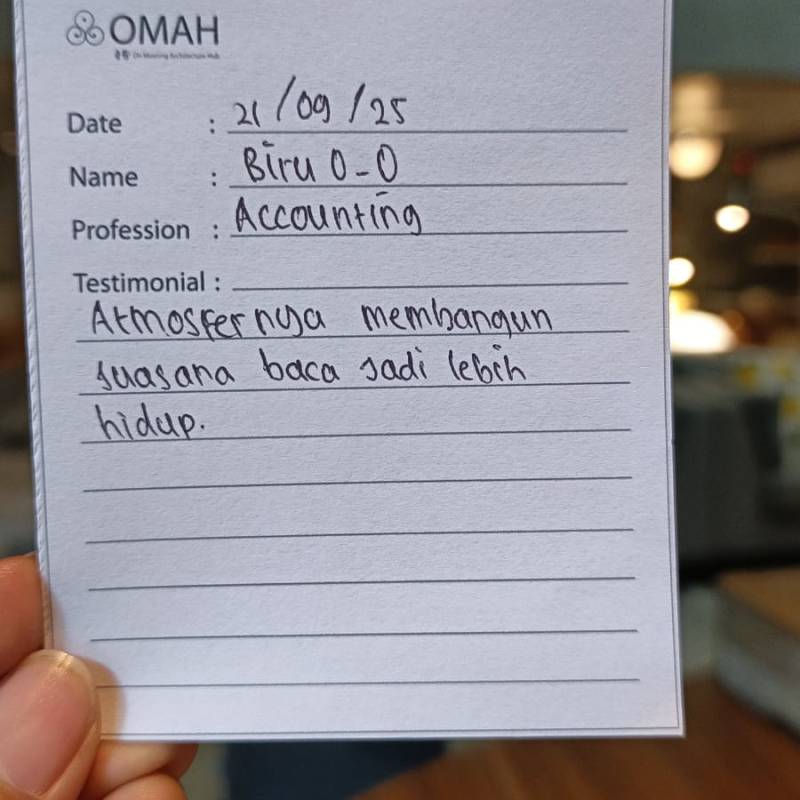 OMAH
Date : 21/09/25
Name : Biru 0-0
Profession : Accounting
Testimonial :
Atmosfernya membangun
suasana baca jadi lebih
hidup.